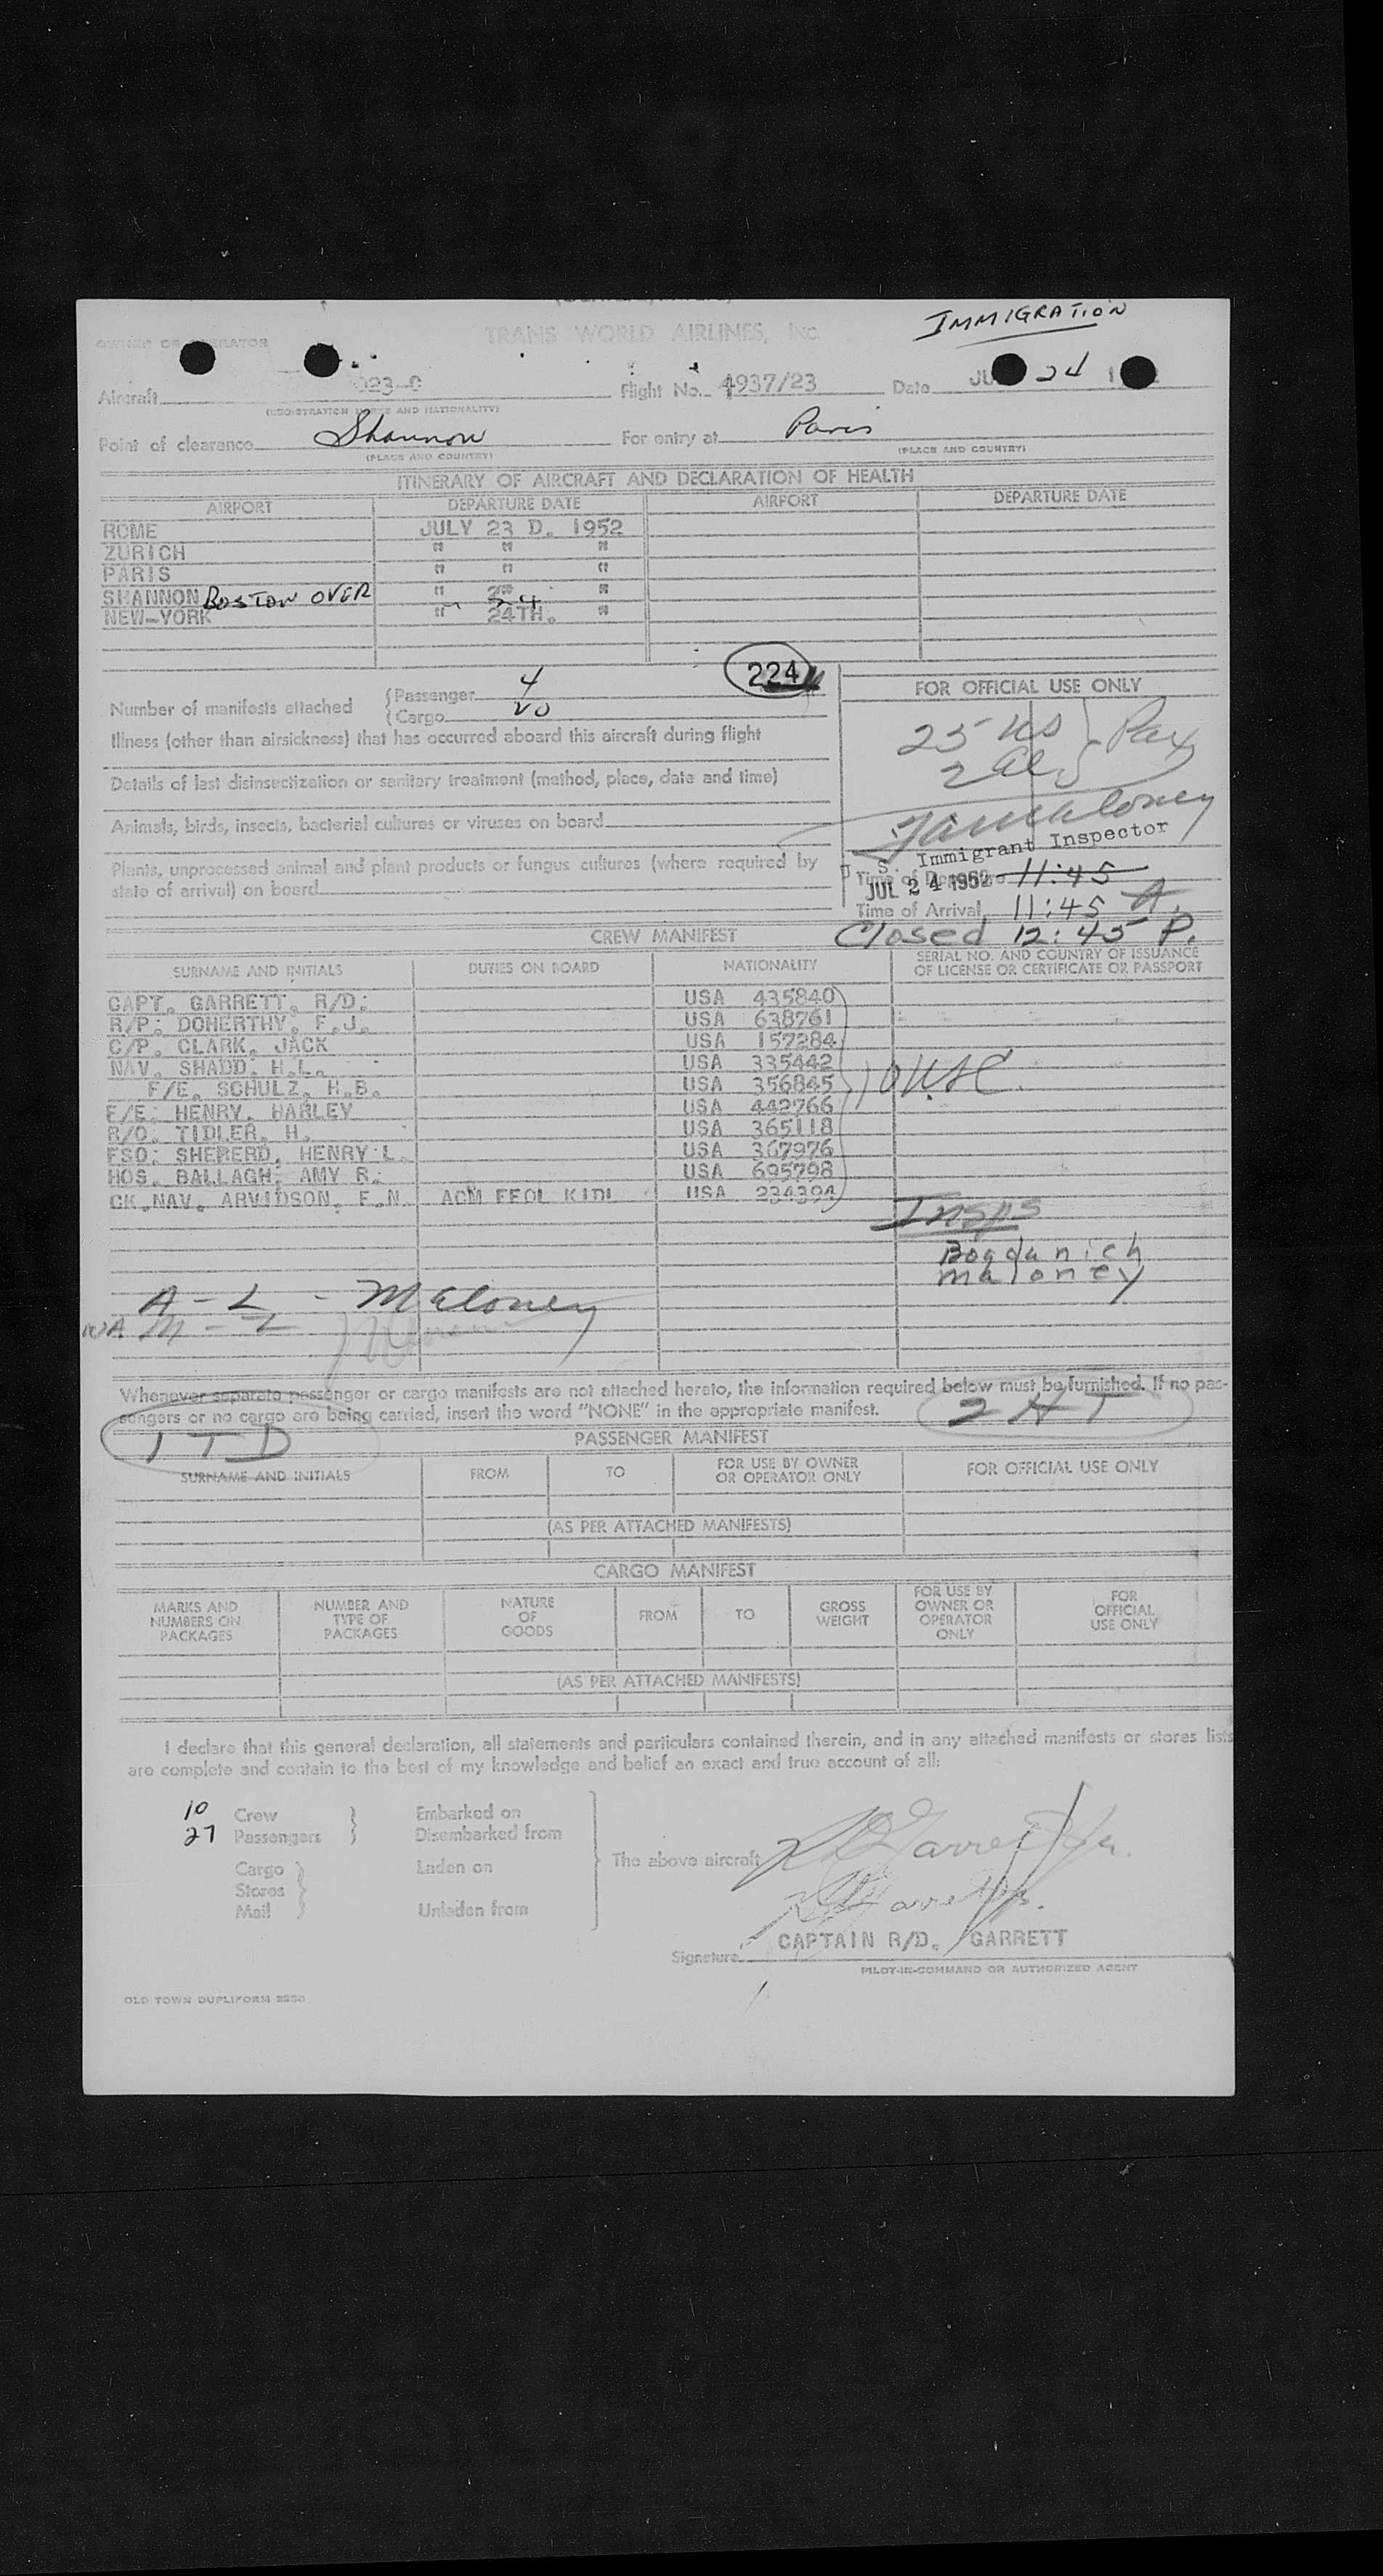 IMMIGRATION
TRANS WORLD AIRLINES, Inc.
OWNER OR OPERATOR
Aircraft 023-C Flight No. 4937/23 Date 24
(REGISTRATION MARKS AND NATIONALITY)
Point of clearance Shannon For entry at Paris
(PLACE AND COUNTRY) (PLACE AND COUNTRY)
ITINERARY OF AIRCRAFT AND DECLARATION OF HEALTH
AIRPORT DEPARTURE DATE AIRPORT DEPARTURE DATE
ROME JULY 23 D. 1952
ZURICH " " "
PARIS " " "
SHANNON BOSTON OVER " 24 "
NEW-YORK " 24TH. "
224
Number of manifests attached { Passenger 4
{ Cargo 20
FOR OFFICIAL USE ONLY
25 US } Pax
2 Al
Illness (other than airsickness) that has occurred aboard this aircraft during flight
Details of last disinsectization or sanitary treatment (method, place, date and time)
Animals, birds, insects, bacterial cultures or viruses on board
Plants, unprocessed animal and plant products or fungus cultures (where required by
state of arrival) on board
Maloney
U. S. Immigrant Inspector
JUL 24 1952
Time of 11:45
Time of Arrival 11:45 A.
Closed 12:45 P.
CREW MANIFEST
SURNAME AND INITIALS DUTIES ON BOARD NATIONALITY SERIAL NO. AND COUNTRY OF ISSUANCE
OF LICENSE OR CERTIFICATE OR PASSPORT
CAPT. GARRETT, R/D: USA 435840
R/P: DOHERTHY. F.J. USA 638761
C/P. CLARK. JACK USA 157284
NAV. SHADD. H.L. USA 335442
F/E. SCHULZ. H.B. USA 356845
10 USC.
F/E: HENRY. HARLEY USA 442766
R/O. TIDLER. H. USA 365118
FSO: SHERERD. HENRY L. USA 367976
HOS. BALLAGH: AMY R: USA 695798
CK.NAV. ARVIDSON. F.N. ACM FEOL KIDL USA 234394
Insps
Bogdanich
Maloney
A - L - Maloney
M - Z
Whenever separate passenger or cargo manifests are not attached hereto, the information required below must be furnished. If no pas-
sengers or no cargo are being carried, insert the word "NONE" in the appropriate manifest.
2 HT
1 TD
PASSENGER MANIFEST
SURNAME AND INITIALS FROM TO FOR USE BY OWNER
OR OPERATOR ONLY FOR OFFICIAL USE ONLY
(AS PER ATTACHED MANIFESTS)
CARGO MANIFEST
MARKS AND
NUMBERS ON
PACKAGES NUMBER AND
TYPE OF
PACKAGES NATURE
OF
GOODS FROM TO GROSS
WEIGHT FOR USE BY
OWNER OR
OPERATOR
ONLY FOR
OFFICIAL
USE ONLY
(AS PER ATTACHED MANIFESTS)
I declare that this general declaration, all statements and particulars contained therein, and in any attached manifests or stores lists
are complete and contain to the best of my knowledge and belief an exact and true account of all:
10 Crew } Embarked on
27 Passengers } Disembarked from
Cargo } Laden on The above aircraft
Stores
Mail } Unladen from
R D Garrett Jr.
R D Garrett Jr.
CAPTAIN R/D. GARRETT
Signature
PILOT-IN-COMMAND OR AUTHORIZED AGENT
OLD TOWN DUPLIFORM